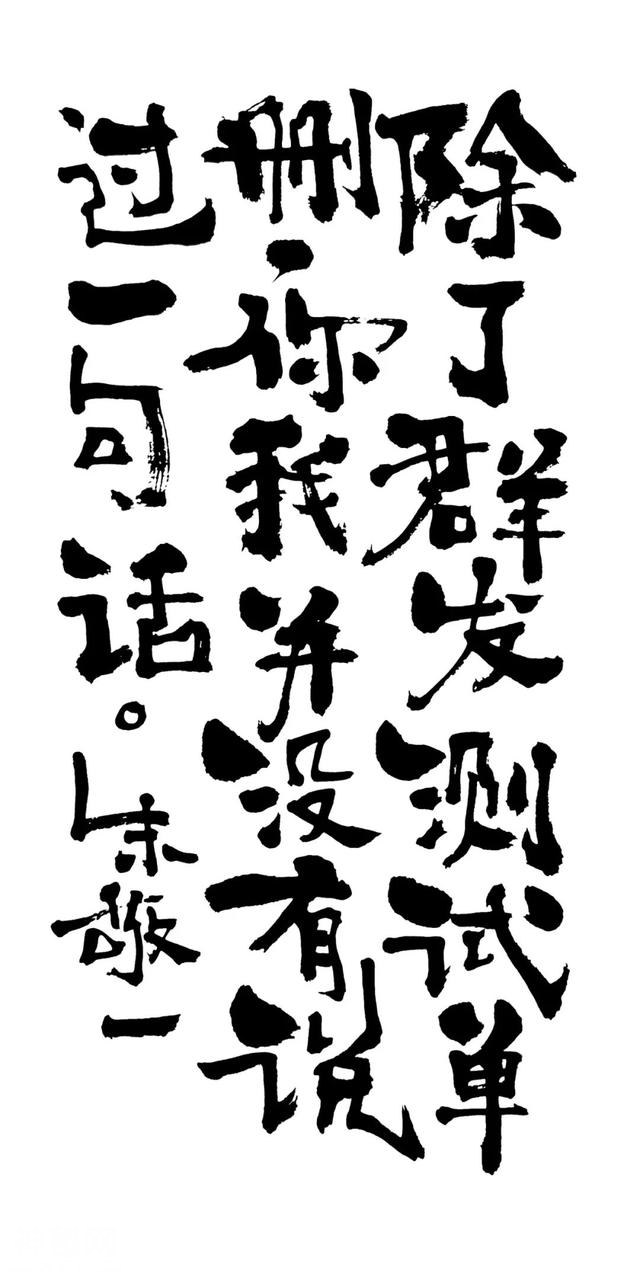 除了群发测试单
删，你我并没有说
过一句话。
朱敬一